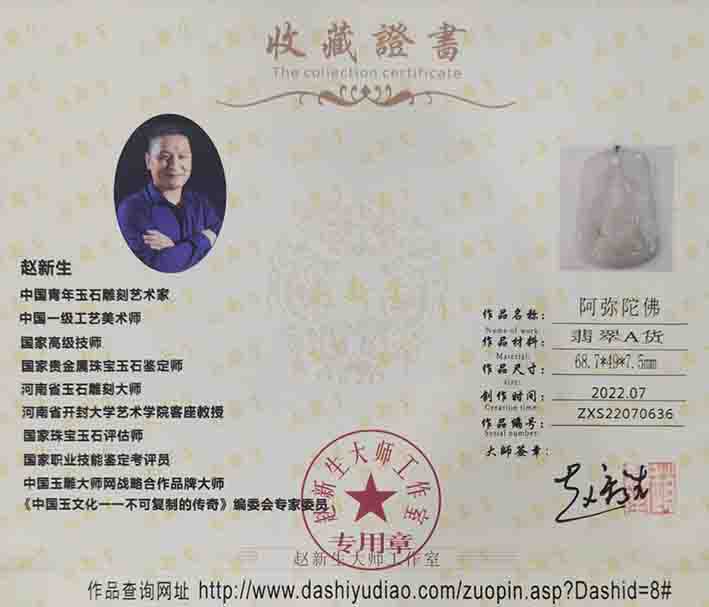 收藏證書
The collection certificate
赵新生
中国青年玉石雕刻艺术家
中国一级工艺美术师
国家高级技师
国家贵金属珠宝玉石鉴定师
河南省玉石雕刻大师
河南省开封大学艺术学院客座教授
国家珠宝玉石评估师
国家职业技能鉴定考评员
中国玉雕大师网战略合作品牌大师
《中国玉文化一一不可复制的传奇》编委会专家委员
作品名称： 阿弥陀佛
Name of work:
作品材料： 翡翠A货
Material:
作品尺寸： 68.7*49*7.5mm
size:
创作时间： 2022.07
Creation time:
作品编号： ZXS22070636
Serial number:
大師签章：
赵新生
赵新生大师工作室
专用章
赵新生大师工作室
作品查询网址 http://www.dashiyudiao.com/zuopin.asp?Dashid=8#